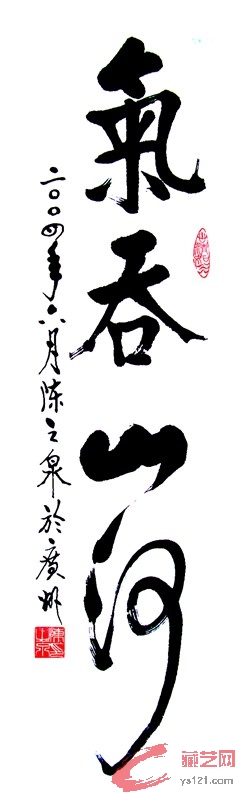 氣吞山河
二〇〇四年六月陈之泉於廣州
藏艺网
ys121.com